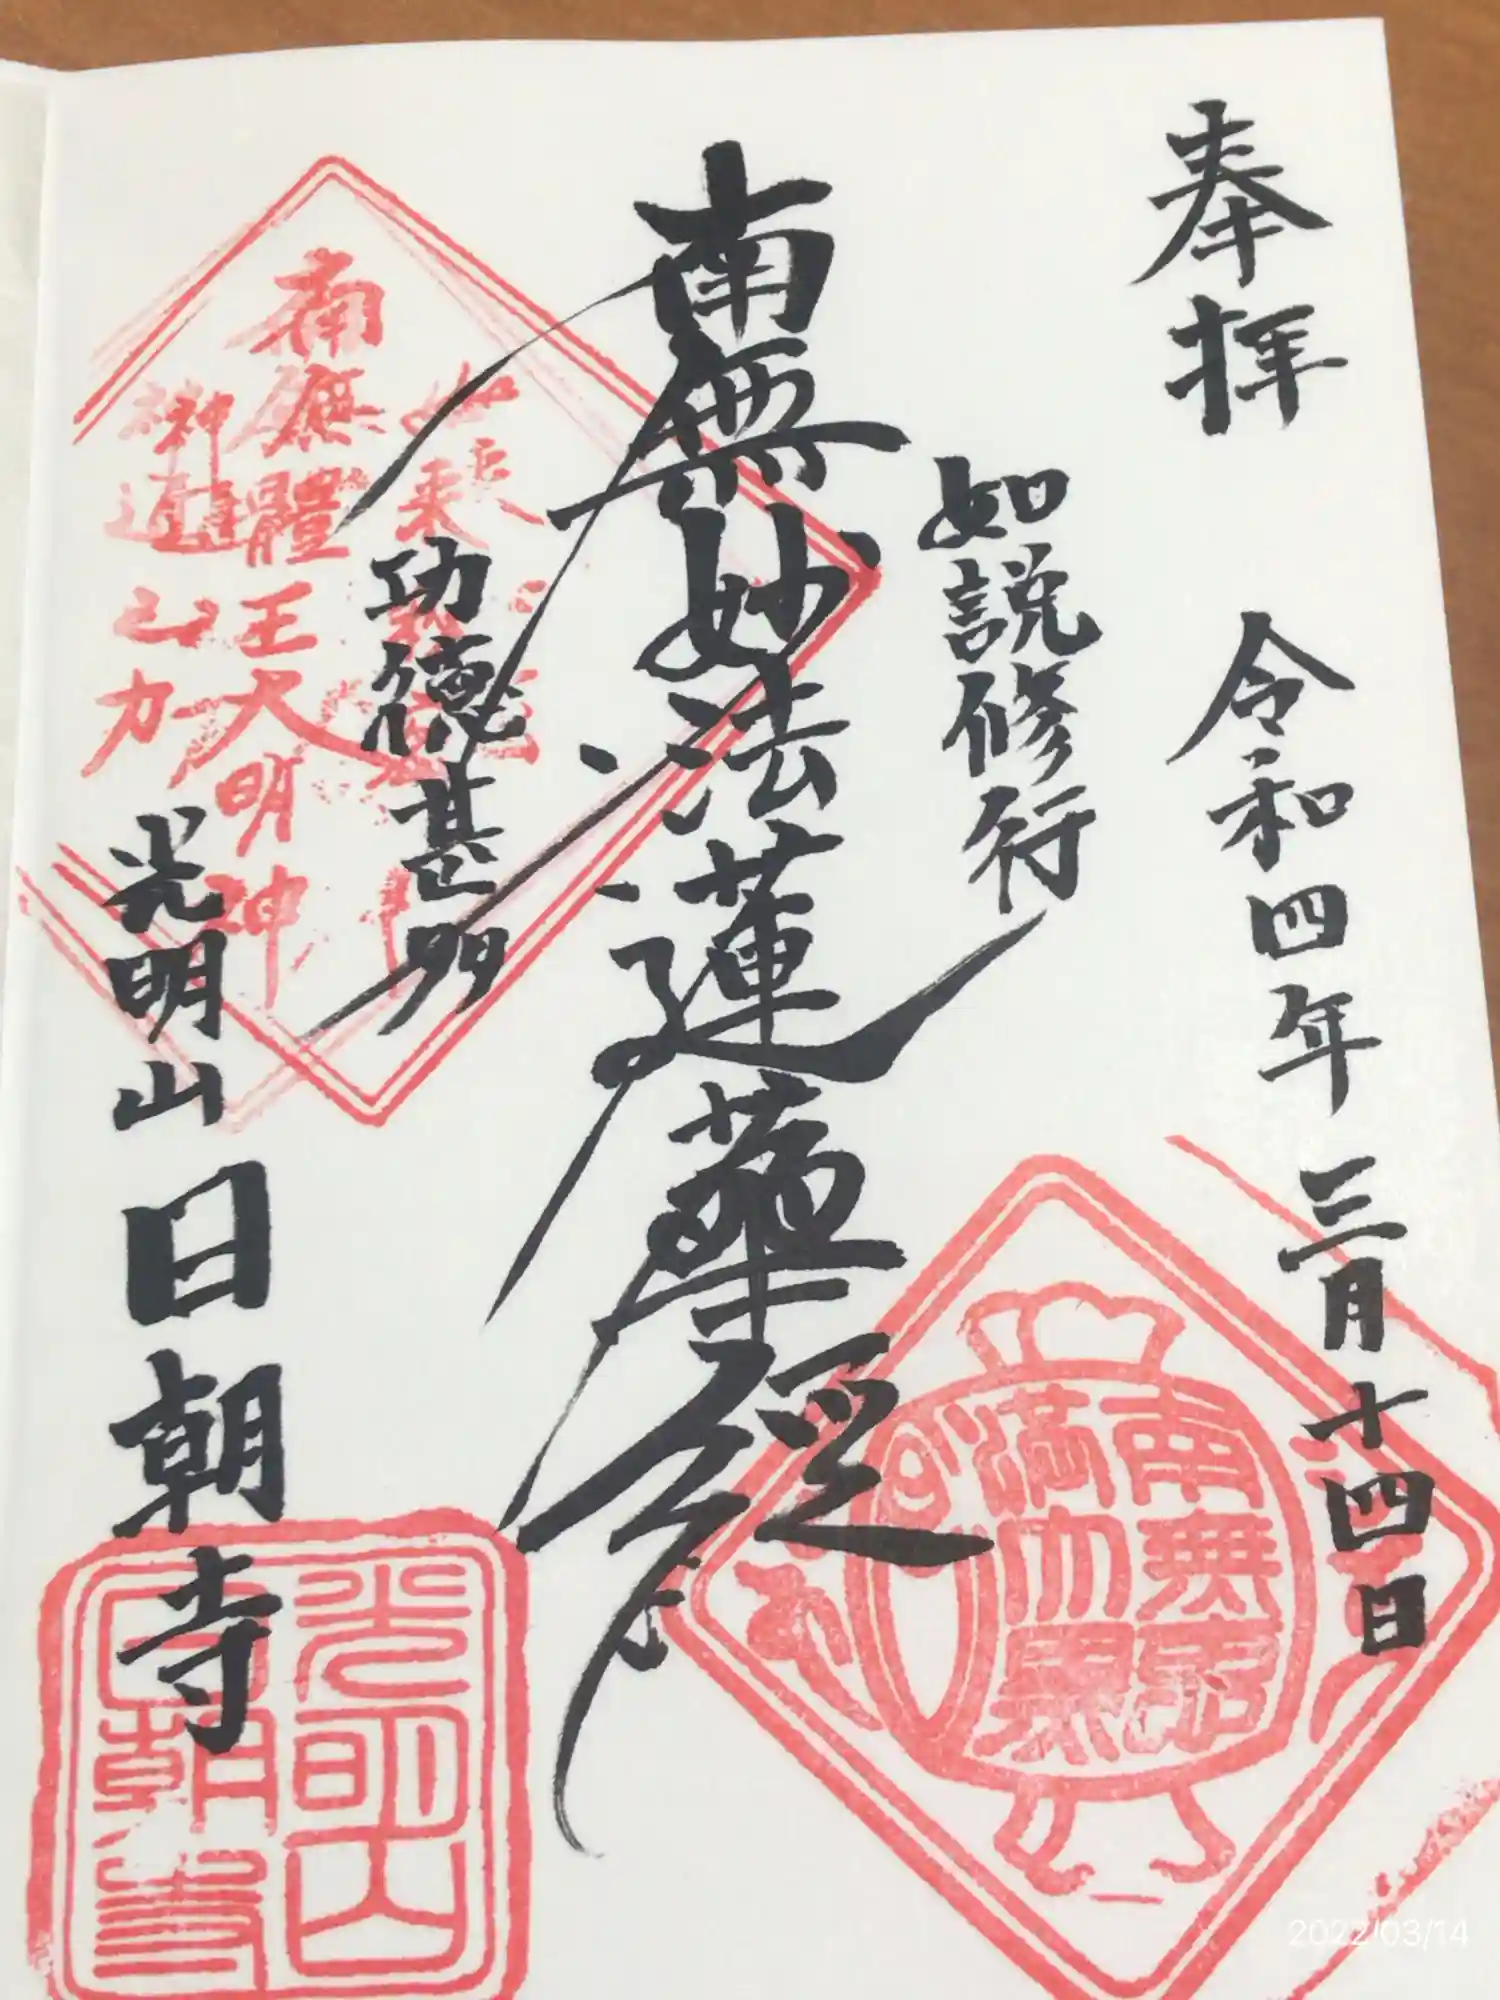 奉拝
令和四年三月十四日
如説修行
南無妙法蓮華経
功徳甚多
光明山
日朝寺
南無體王大明神
神通之力
光明山
日朝寺
2022/03/14